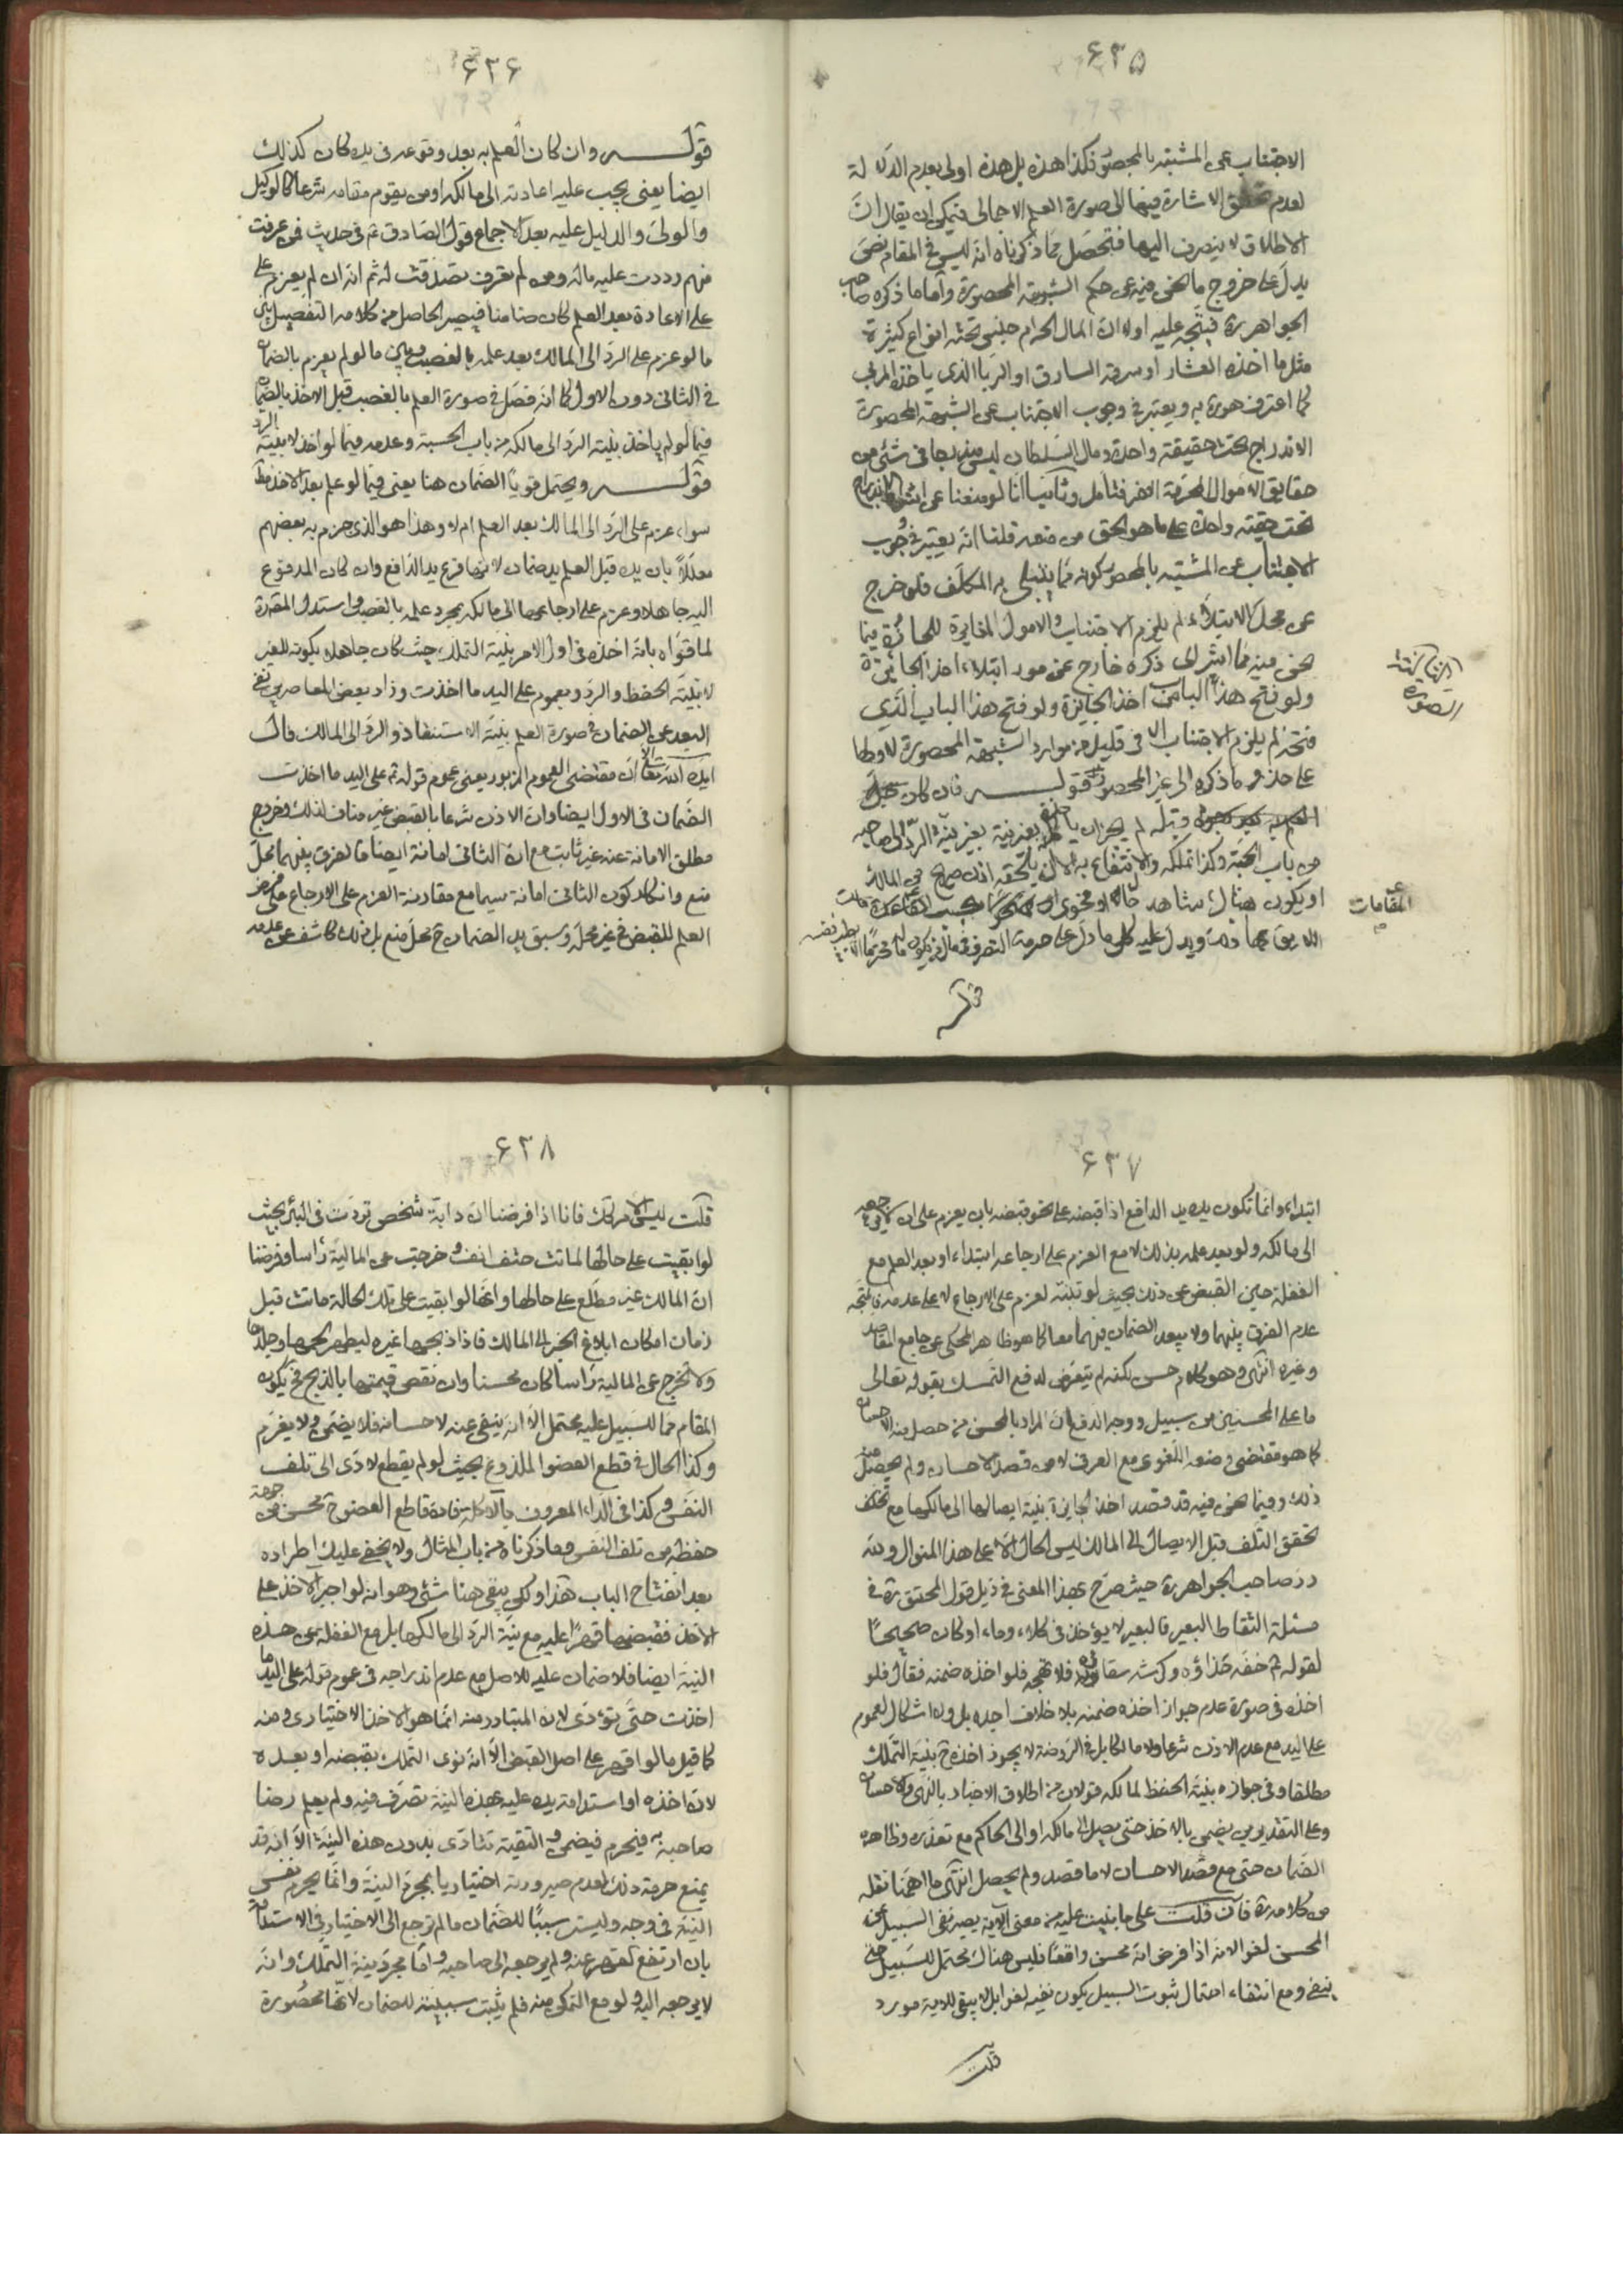 ۶۳۵
الاجتناب عن المشتبه بالمحصور فكذا هذه بل هذه اولى بعدم الدلالة
لعدم تحقق الاشارة فيها الى صورة العلم الاجمالى فيمكن ان يقال ان
الاطلاق لا ينصرف اليها فتحصّل ممّا ذكرناه انه ليس فى المقام نص
يدل على خروج ما نحن فيه عن حكم الشبهة المحصورة وامّا ما ذكره صاحب
الجواهر ره فيتجه عليه اولا ان المال الحرام جنس تحته انواع كثيرة
مثل ما اخذه العشار او سرقة السارق او الربا الذى ياخذه المربى
كما اعترف هو ره به ويعتبر فى وجوب الاجتناب عن الشبهة المحصورة
الاندراج تحت حقيقة واحدة ومال السلطان ليس مندرجا فى شئ من
حقايق الاموال المحرمة الاخر فتامل وثانيا انا لو منعنا عن اشتراط اندراج
تحت حقيقة واحدة على ما هو الحق من منعه قلنا انه يعتبر فى وجوب
الاجتناب عن المشتبه بالمحصور كونه مما يبتلى به المكلف فلو خرج
عن محل الابتلاء لم يلزم الاجتناب والامول المغايرة للجائزة فيما
نحن فيه مما اشر الى ذكره خارج عن مورد ابتلاء اخذ الجائزة
ولو فتح هذا الباب من اخذ الجايزة ولو فتح هذا الباب الذى
فتحه لم يلزم الاجتناب الا فى قليل من موارد الشبهة المحصورة لاولها
على حذو ما ذكره الى غير المحصور قوله فان كان
وقبله لم يجز ان ياخذه بغير نية الرد الى صاحبه
من باب الحسبة وكذا تملكه والانتفاع به الا ان يلحقه اذن صريح من المالك
او يكون هناك شاهد حال او فحوى
ويدل عليه كل ما دل على حرمة التصرف فى مال الغير
المقامات
قوله
۶۳۶
قوله وان كان العلم به بعد وقوعه فى يده كان كذلك
ايضا يعنى يجب عليه اعادته الى مالكه او من يقوم مقامه شرعا كالوكيل
والولىّ والدليل عليه بعد الاجماع قول الصادق ع فى حديث فمن عرفت
منهم رددت عليه ماله ومن لم تعرف تصدقت له ثم انه ان لم يعزم على
على الاعادة بعد العلم كان ضامنا فيصير الحاصل من كلامه التفصيل بين
ما لو عزم على الرد الى المالك بعد علمه بالغصب وبين ما لو لم يعزم بالضمان
فى الثانى دون الاول كما انه فصّل فى صورة العلم بالغصب قبل الاخذ بالضمان
فيما لو لم ياخذ بنية الرد الى مالكه من باب الحسبة وعدمه فيما لو اخذ لا بنية الرد
قوله ويحتمل قويا الضمان هنا يعنى فيما لو علم بعد الاخذ مط
سواء عزم على الرد الى المالك بعد العلم ام لا وهذا هو الذى جزم به بعضهم
معللا بان يده قبل العلم يد ضمان لانها فرع يد الدافع وان كان المدفوع
اليه جاهلا وعزم على ارجاعها الى مالكه بمجرد علمه بالغصب واستدل المقدة
لما قواه بانه اخذه فى اول الامر بنية التملك حيث كان جاهلا بكونه للغير
لا بنية الحفظ والرد وبعموم على اليد ما اخذت وزاد بعض المعاصرين نفى
البعد عن الضمان فى صورة العلم بنية الاستنقاذ والرد الى المالك قال
ايده الله تعالى ان مقتضى العموم المزبور يعنى عموم قوله ع على اليد ما اخذت
الضمان فى الاول ايضا وان الاذن شرعا بالقبض غير مناف لذلك وخروج
مطلق الامانة عنه غير ثابت مع ان الثانى امانة ايضا فالفرق بينهما محل
منع وانكار كون الثانى امانة سيما مع مقارنة العزم على الارجاع
العلم للقبض فى غير محله وسبق يد الضمان ح محل منع بل ذلك كاشف عن عدمه
۶۳۷
ابتداء وانما تكون يده يد الدافع اذا قبضه على نحو قبضه بان يعزم على ان لا يرجعه
الى مالكه ولو بعد علمه بذلك لا مع العزم على ارجاعه ابتداء او بعد العلم مع
الغفلة حين القبض عن ذلك بحيث لو تنبّه لعزم على الارجاع لا على عدمه فالمتجه
عدم الفرق بينهما ولا يبعد الضمان فيهما معا كما هو ظاهر المحكى عن جامع المقاصد
وغيره انتهى وهو كلام حسن لكنه لم يتعرض لدفع التمسك بقوله تعالى
ما على المحسنين من سبيل ووجه الدفع ان المراد بالمحسن من حصل منه الاحسان
كما هو مقتضى وضعه اللغوى مع العرف لا من قصد الاحسان ولم يحصل منه
ذلك وفيما نحن فيه قد قصد اخذ الجايزة بنية ايصالها الى مالكها مع تخلف
تحقق التلف قبل الايصال الى المالك ليس الحال الا على هذا المنوال ولله
در صاحب الجواهر ره حيث صرح بهذا المعنى فى ذيل قول المحقق ره فى
مسئلة التقاط البعير فالبعير لا يؤخذ فى كلاء وماء او كان صحيحا
لقوله ع خفه حذاؤه وكرشه سقاؤه فلا تهجه فلو اخذه ضمنه فقال فلو
اخذه فى صورة عدم جواز اخذه ضمنه بلا خلاف اجده بل ولا اشكال لعموم
على اليد مع عدم الاذن شرعا ولا مالكا بل فى الروضة لا يجوز اخذه ح بنية التملك
مطلقا وفى جوازه بنية الحفظ لمالكه قولان من اطلاق الاخبار بالنهى والاحسان
وعلى التقديرين يضمن بالاخذ حتى يصل الى مالكه او الى الحاكم مع تعذره وظاهره
الضمان حتى مع قصد الاحسان لا ما قصد ولم يحصل انتهى ما اهمنا نقله
من كلامه ره فان قلت على ما بنيت عليه من معنى الاية يصير نفى السبيل عن
المحسن لغوا لانه اذا فرض انه محسن واقعا فليس هناك محتمل للسبيل حتى
ينفى ومع انتفاء احتمال ثبوت السبيل يكون نفيه لغوا بل لا يبقى للاية مورد
قلت
۶۳۸
قلت ليس الامر كك فانا اذا فرضنا ان دابة شخص تردت فى البئر بحيث
لو بقيت على حالها لماتت حتف انفه وخرجت عن المالية راسا وفرضنا
ان المالك غير مطلع على حالها وانها لو ابقيت على تلك الحالة ماتت قبل
زمان امكان ابلاغ الخبر الى المالك فاذا ذبحها غيره ليطهر لحمها وجلدها
ولا تخرج عن المالية راسا كان محسنا وان نقص قيمتها بالذبح فح يكون
المقام مما للسبيل عليه محتمل الا انه ينفى عنه لاحسانه فلا يضمن ولا يغرم
وكذا الحال فى قطع العضو الملدوغ بحيث لو لم يقطع لادى الى تلف
النفس وكذا فى الداء المعروف بالاكلة فان قاطع العضو ح محسن من جهة
حفظه من تلف النفس وما ذكرناه من باب المثال ولا يخفى عليك اطراده
بعد انفتاح الباب هذا ولكن يبقى هنا شئ وهو انه لو اجبر الاخذ على
الاخذ فقبضها قهرا عليه مع نية الرد الى مالكها بل مع الغفلة عن هذه
النية ايضا فلا ضمان عليه للاصل مع عدم اندراجه فى عموم قوله على اليد ما
اخذت حتى تؤدى لان المتبادر منه انما هو الاخذ الاختيارى ومنه
كما قيل ما لو اقهر على اصل القبض الا انه نوى التملك بقبضه او بعده
لان اخذه او استدامة يده عليه بهذه النية تصرف فيه ولم يعلم رضا
صاحبه به فيحرم فيضمن والتقية تتادى بدون هذه النية الا انه قد
يمنع حرمة ذلك لعدم صيرورته اختياريا بمجرد النية وانما يحرم نفس
النية فى وجه وليست سببا للضمان ما لم ترجع الى الاختيار فى الاستدامة
بان ارتفع القهر عنه ولم يرجعه الى صاحبه واما مجرد نية التملك وانه
لا يرجعه اليه ولو مع التمكن منه فلم يثبت سببيته للضمان لانها محصورة